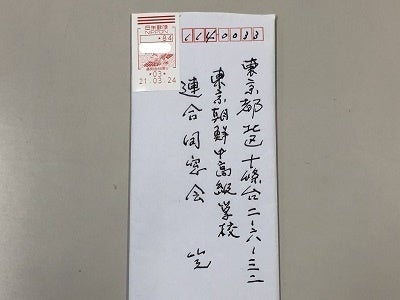 日本郵便
NIPPON
*84
*03*
21.03.24
1140033
東京都北区十條台二-六-三二
東京朝鮮中高級学校
連合同窓会 宛